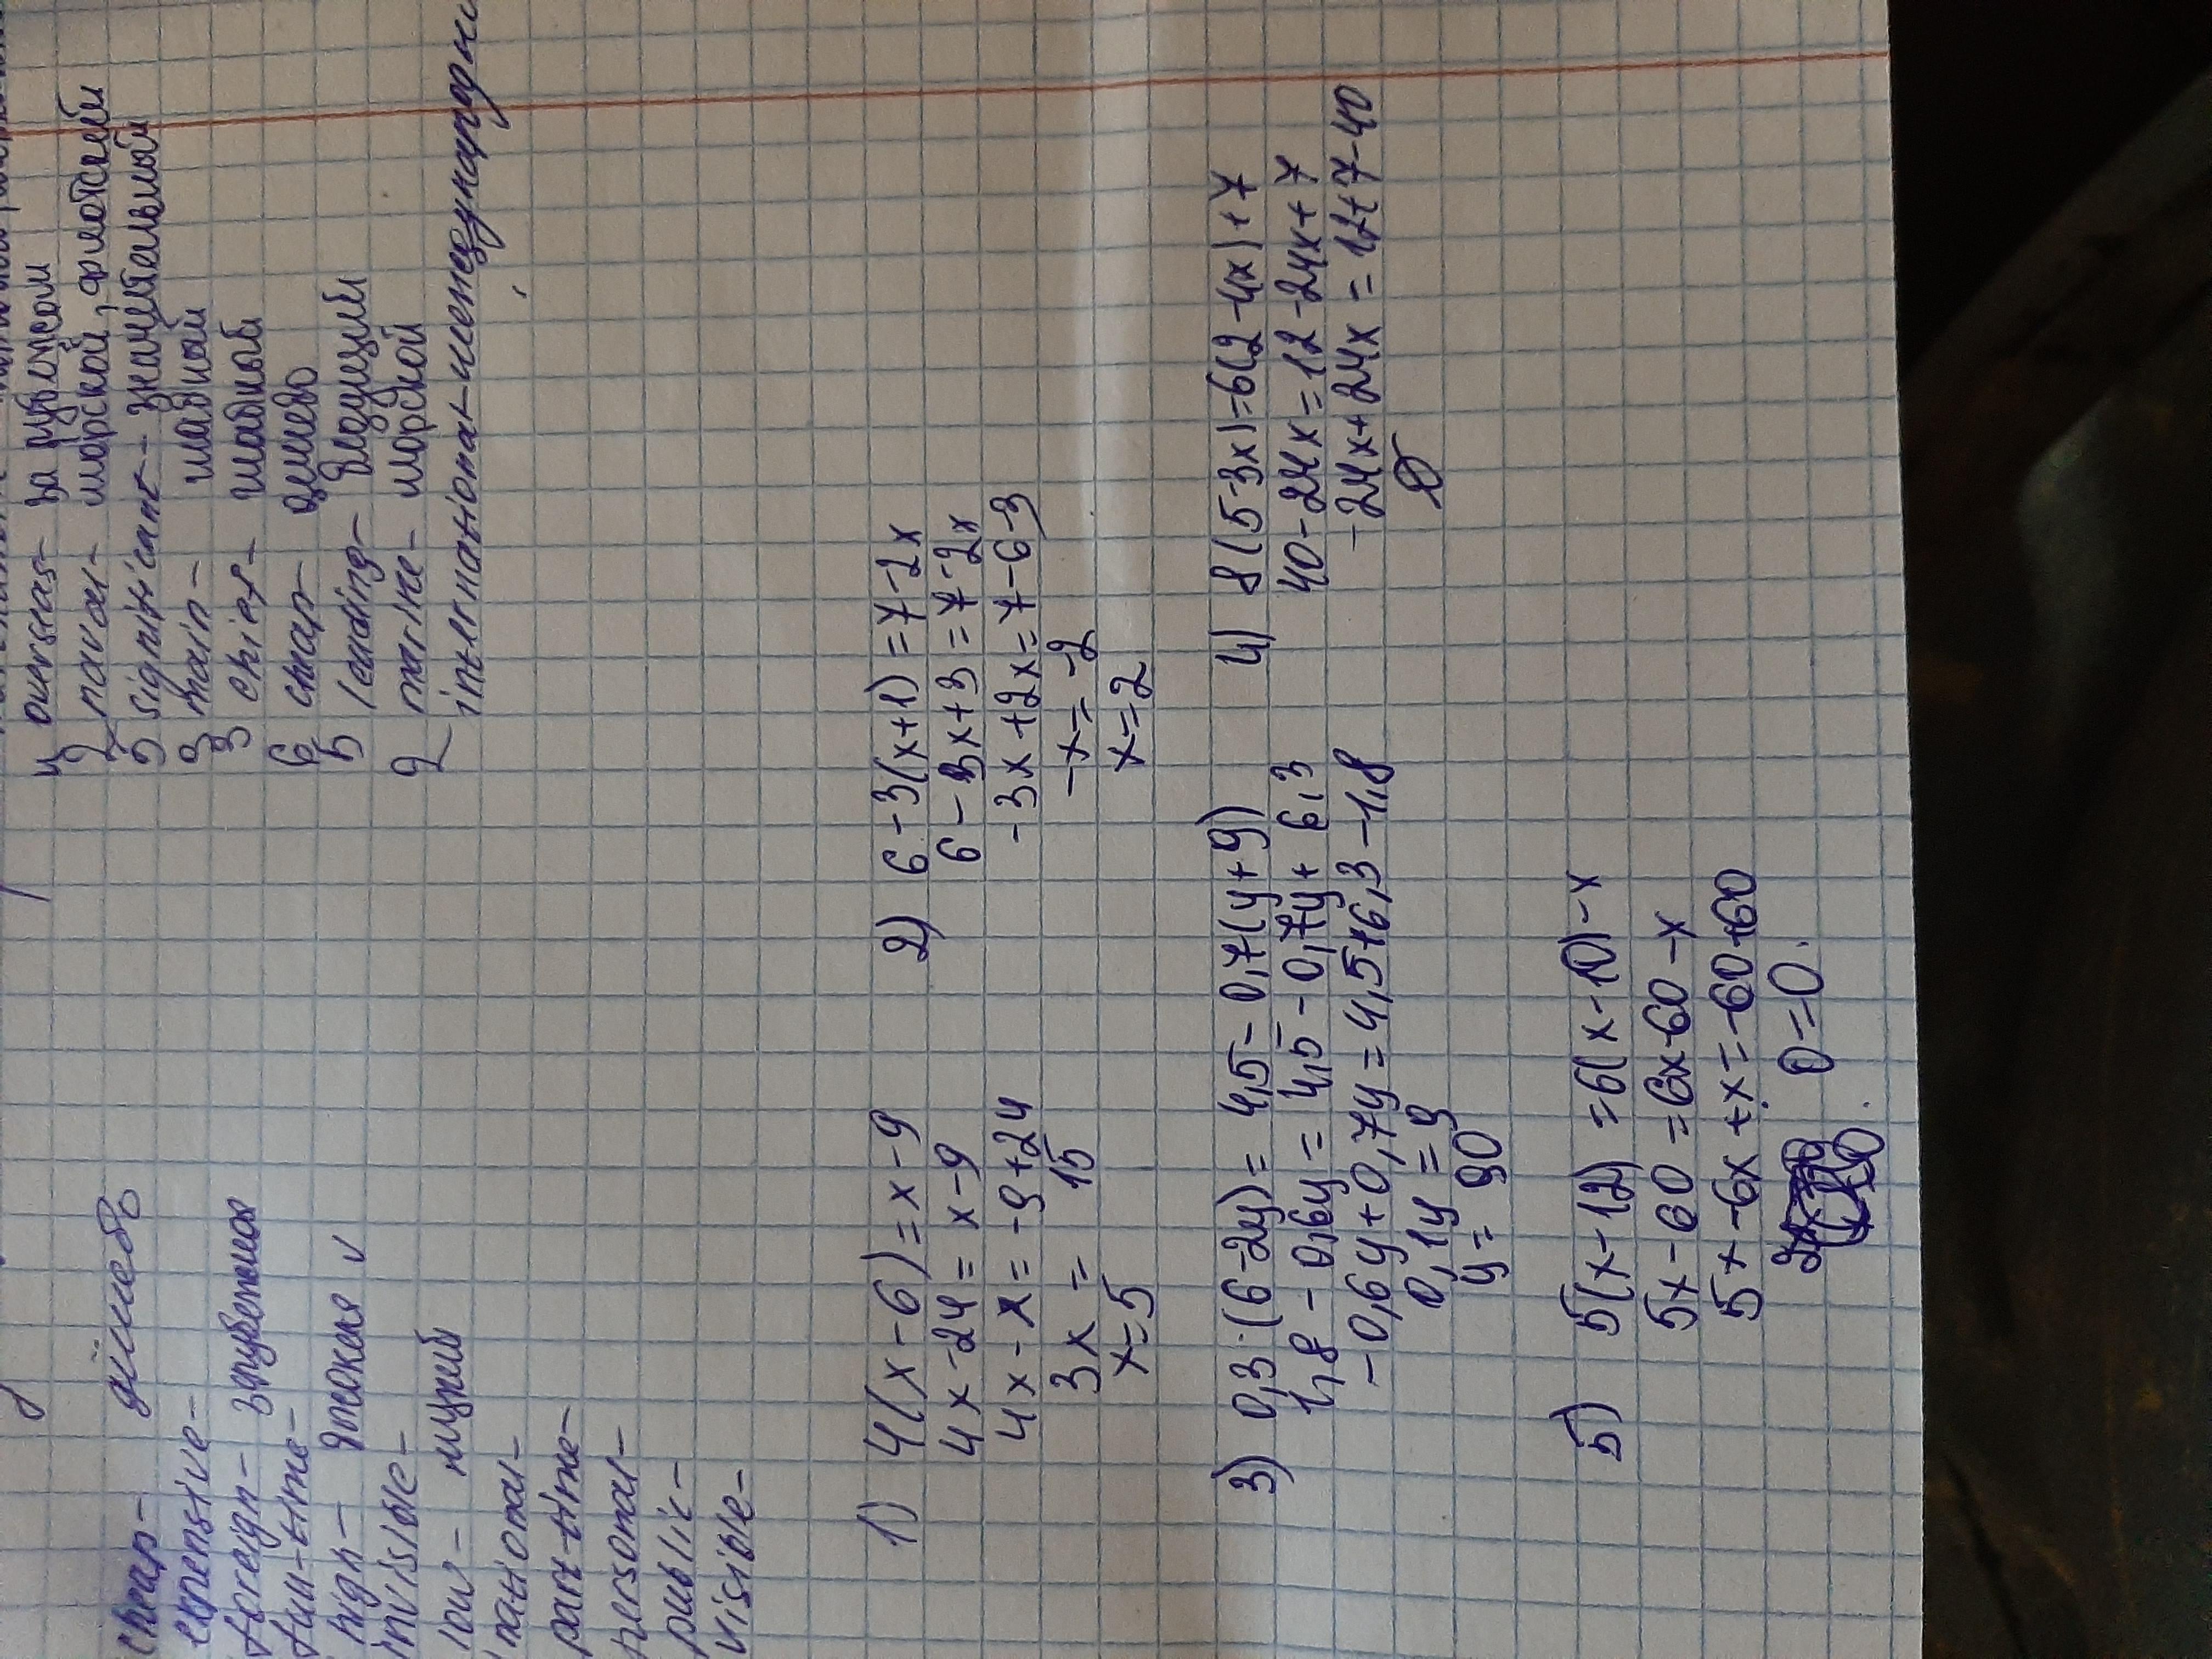 cheap- дёшево
expensive-
foreign- зарубежная
full-time-
high- высокая v
invisible-
low- нуций
national-
part-time-
personal-
public-
visible-
4 overseas- за рубежом
2 naval- морской, флотский
5 significant- значительный
3 main- главный
3 chief- главный
6 cheap- дёшево
5 leading- ведущий
2 marine- морской
international-
1) 4(x-6)=x-9
4x-24=x-9
4x-x=-9+24
3x = 15
x=5
2) 6-3(x+1)=7-2x
6-3x+3=7-2x
-3x+2x=7-6-3
-x=-2
x=2
3) 0,3·(6-2y)=4,5-0,7(y+9)
1,8-0,6y=4,5-0,7y+6,3
-0,6y+0,7y=4,5+6,3-1,8
0,1y=9
y=90
4) 8(5-3x)=6(2-4x)+7
40-24x=12-24x+7
-24x+24x=12+7-40
5) 5(x-12)=6(x-10)-x
5x-60=6x-60-x
5x-6x+x=-60+60
0=0.